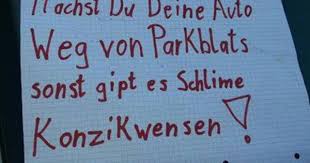 Machst Du Deine Auto
Weg von Parkblats
sonst gipt es Schlime
Konzikwensen!